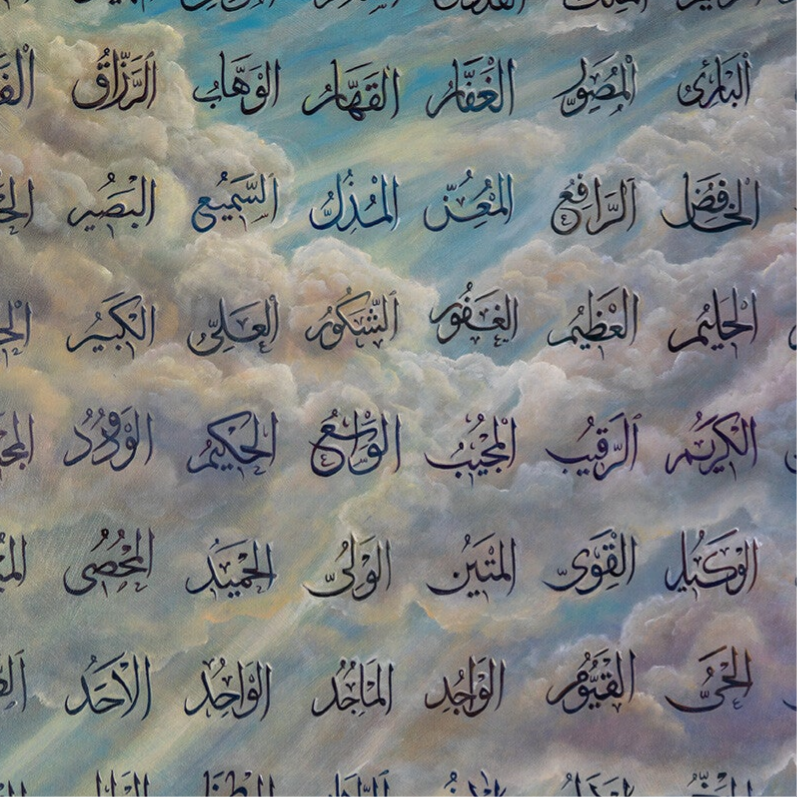 البارئ المصور الغفار القهار الوهاب الرزاق
الخافض الرافع المعز المذل السميع البصير
الحليم العظيم الغفور الشكور العلي الكبير
الكريم الرقيب المجيب الواسع الحكيم الودود
الوكيل القوي المتين الولي الحميد المحصي
الحي القيوم الواجد الماجد الواحد الأحد